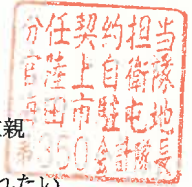 分任契約担当
官陸上自衛隊
田市駐屯地
360会計隊長
親
れたい